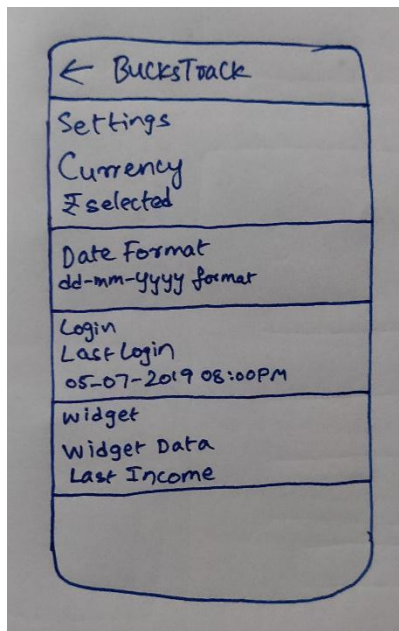 ← BucksTrack
Settings
Currency
₹ selected
Date Format
dd-mm-yyyy format
Login
Last Login
05-07-2019 08:00PM
Widget
Widget Data
Last Income